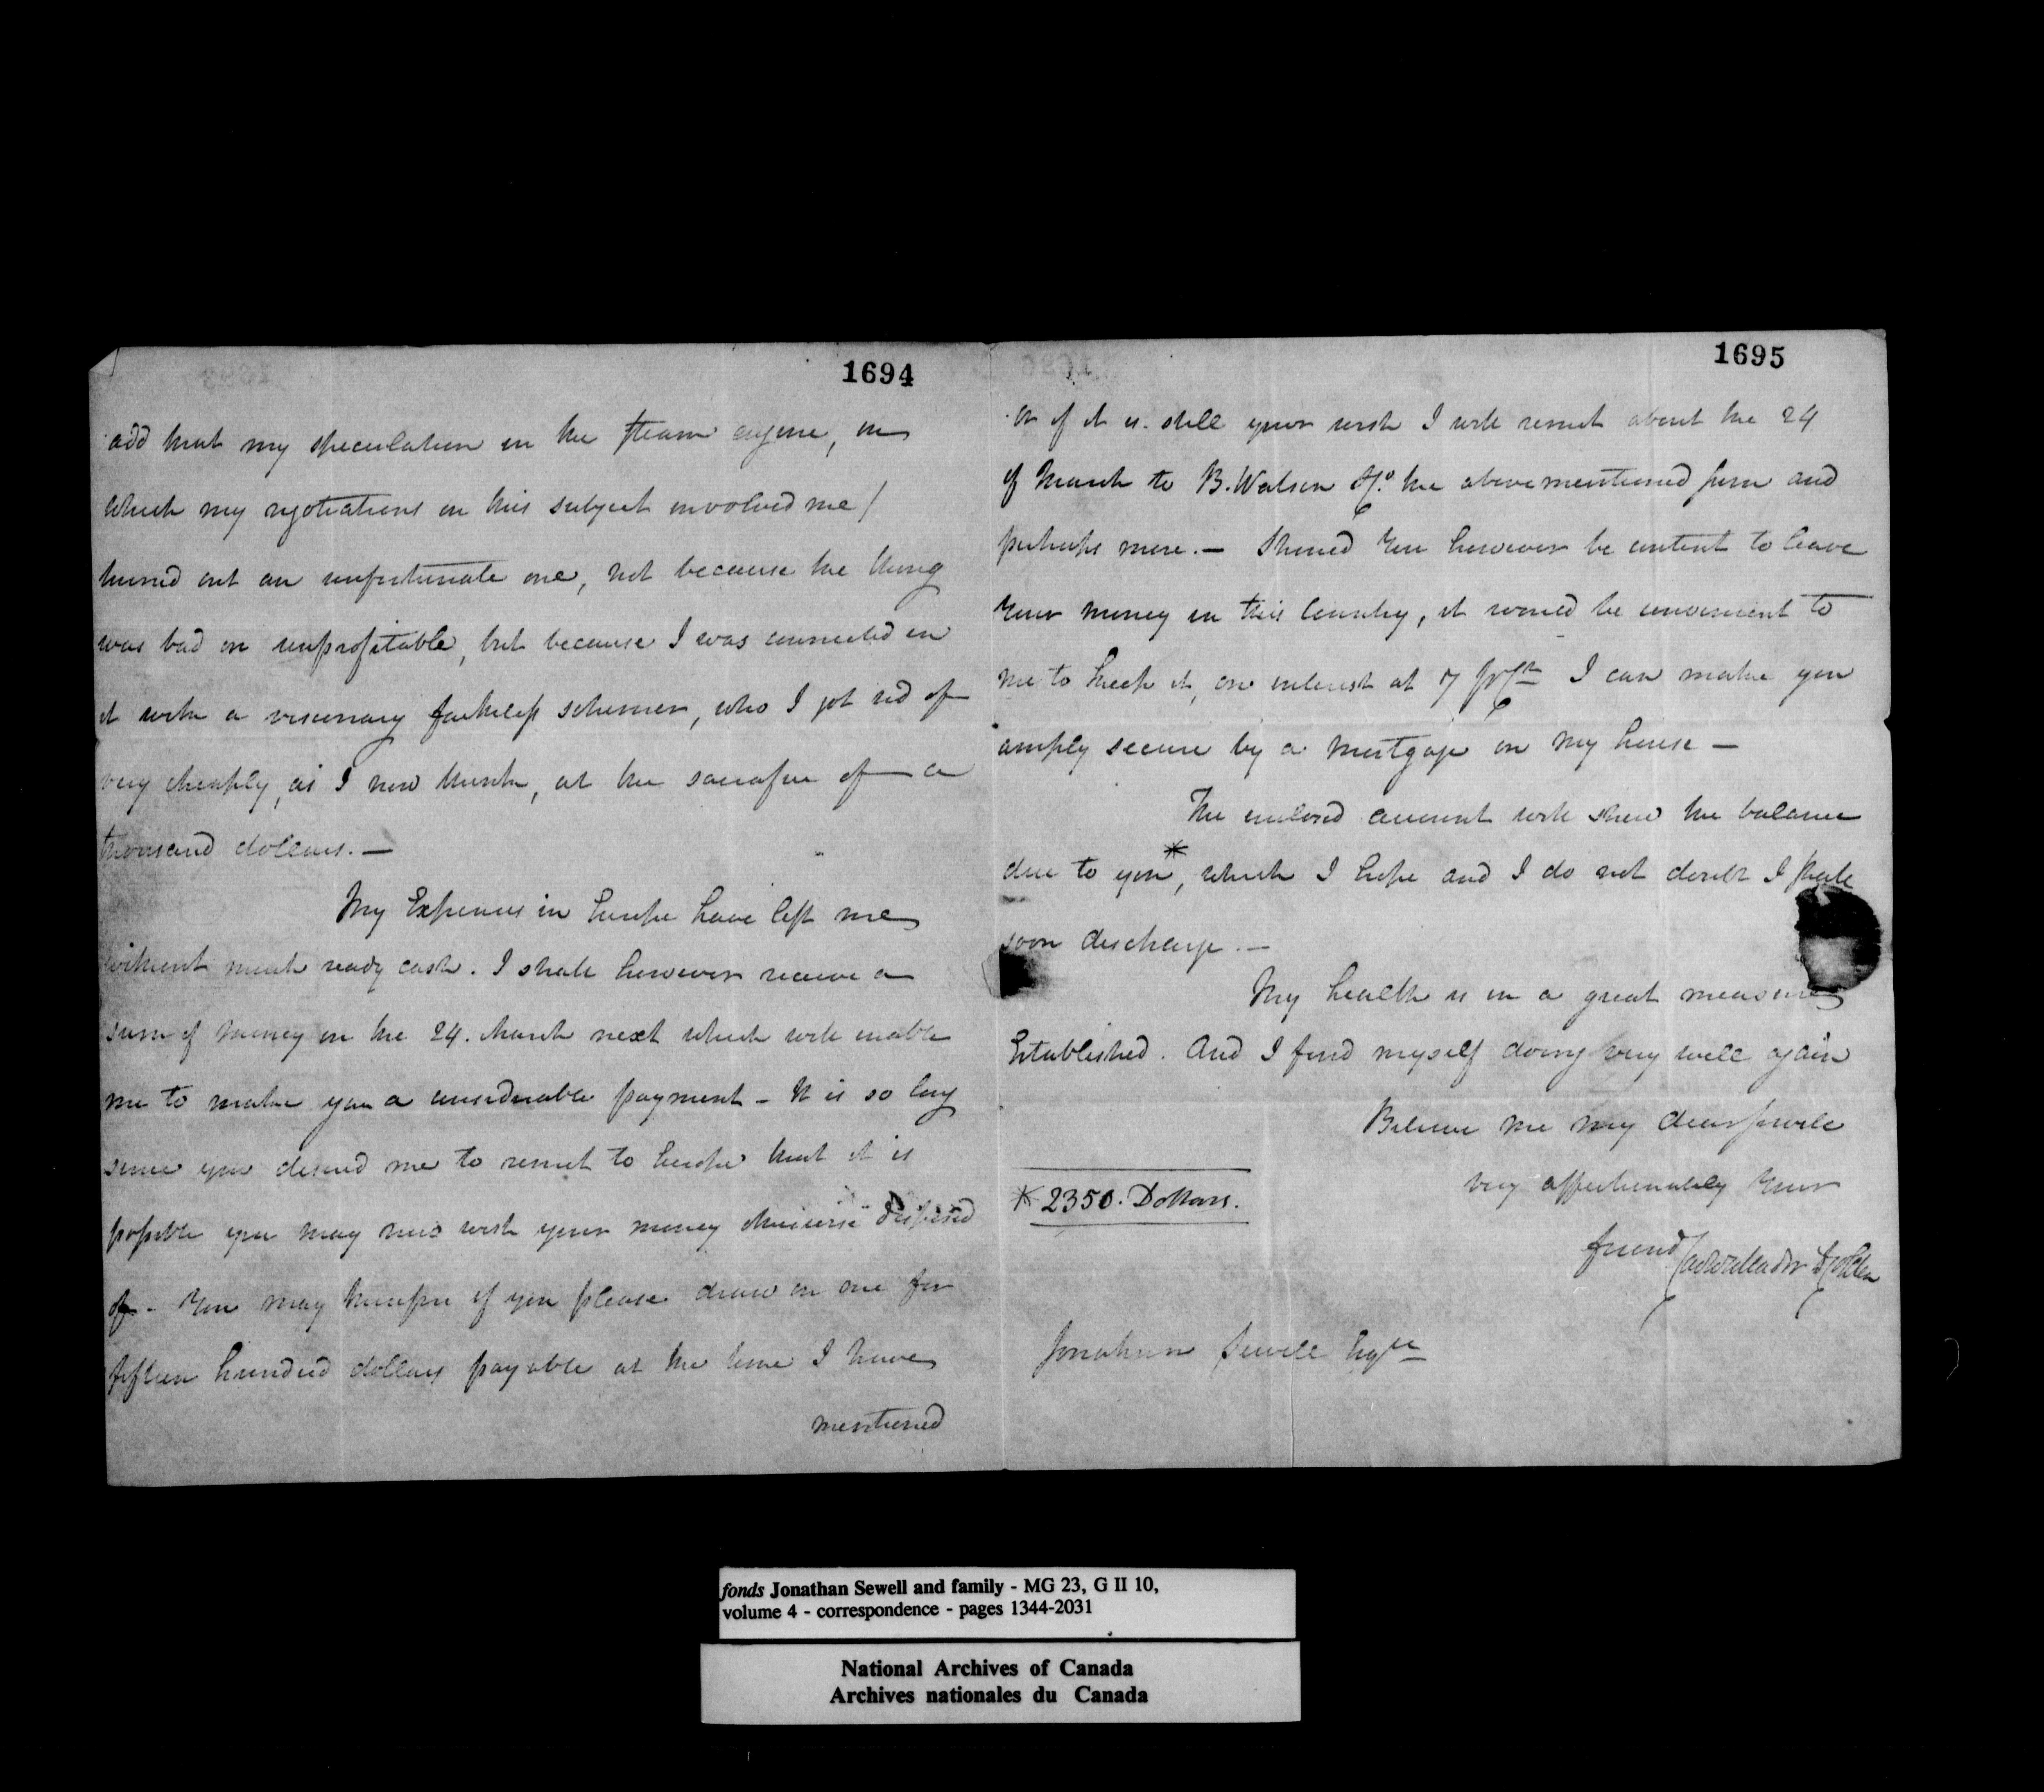 1694
add that my speculation in the steam engine, in
which my negotiations on this subject involved me/
turned out an unfortunate one, not because the thing
was bad or unprofitable, but because I was connected in
it with a visionary faithless schemer, who I got rid of
very cheaply, as I now think, at the sacrafice of a
thousand dollars. —
My Expences in Europe have left me
without much ready cash. I shall however receive a
sum of money on the 24. March next which will enable
me to make you a considerable payment - It is so long
since you desired me to remit to Europe that it is
possible you may now wish your money otherwise disposed
of - You may therefore if you please draw on me for
fifteen hundred dollars payable at the time I have
mentioned
1695
or if it is still your wish I will remit about the 24
of March to B. Watson &Co. the above mentioned sum and
perhaps more. — Should you however be content to leave
your money in this Country, it would be convenient to
me to keep it, on interest at 7 pr Ct I can make you
amply secure by a mortgage on my house —
The enclosed account will shew the balance
due to you*, which I hope and I do not doubt I shall
soon discharge. —
My health is in a great measure
Established. And I find myself doing very well again
Believe me my dear Sewell
very affectionately your
friend Cadwallader D Colden
* 2350. Dollars.
Jonathan Sewell Esqre
fonds Jonathan Sewell and family - MG 23, G II 10,
volume 4 - correspondence - pages 1344-2031
National Archives of Canada
Archives nationales du Canada